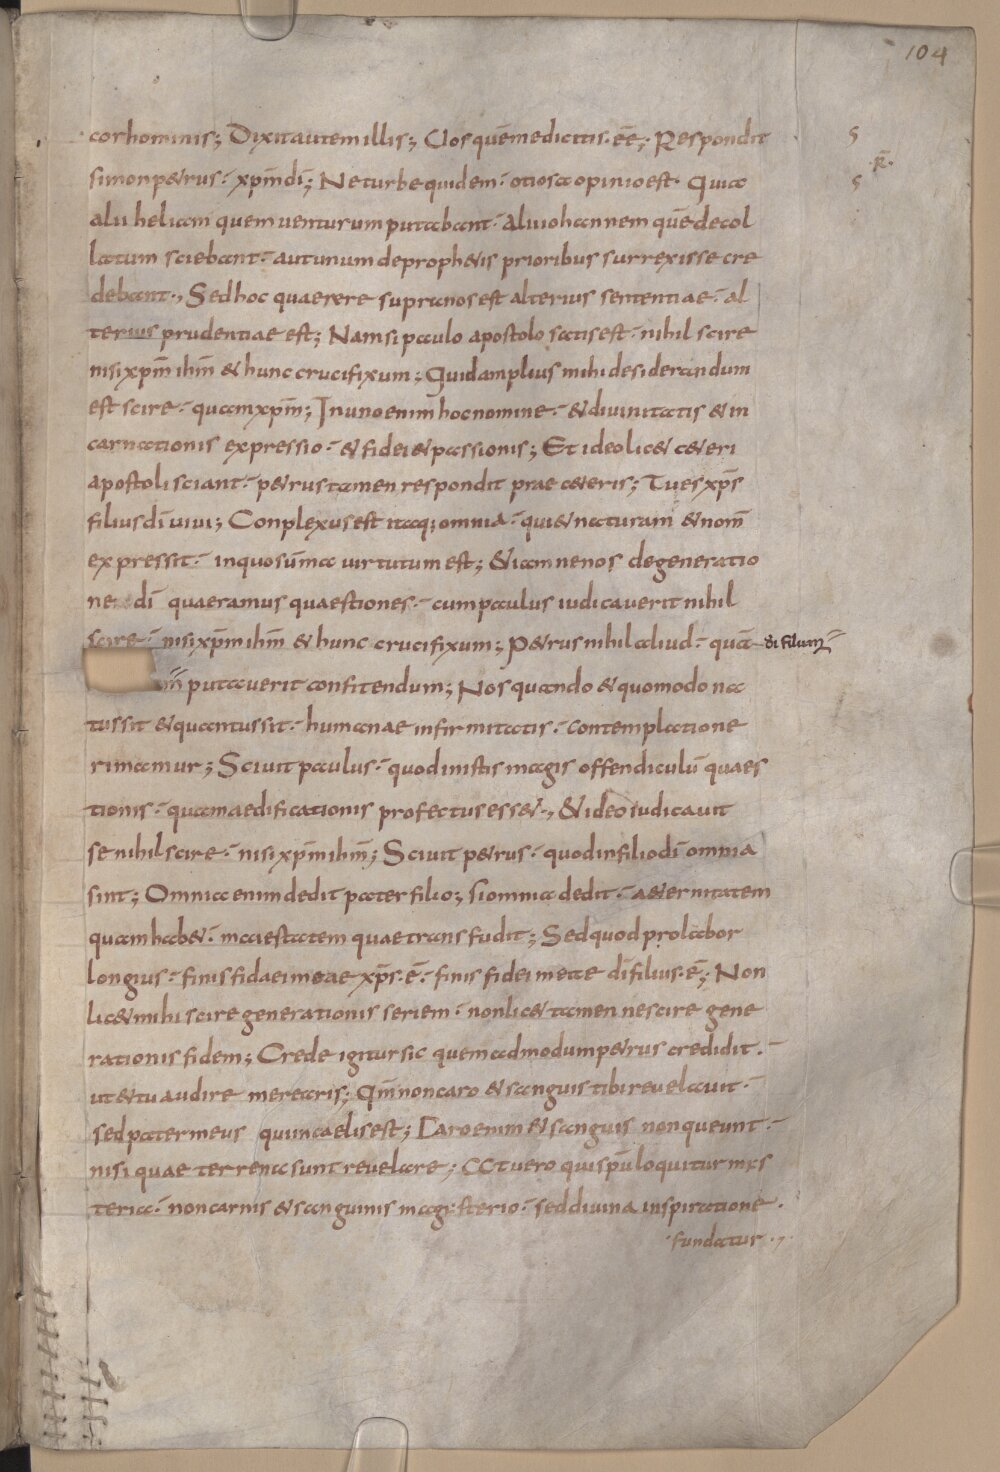 104
cor hominis; Dixit autem illis; Uos quē me dicitis. eē; Respondit
simon petrus. xp̄m dī; Ne turbe quidem. otiosa opinio est. Quia
alii heliam quem uenturum putabant. alii iohannem quē decol
latum sciebant. aut unum de prophetis prioribus surrexisse cre
debant., Sed hoc quaerere supra nos est alterius sententiae. al
terius prudentiae est; Nam si paulo apostolo satis est. nihil scire
nisi xp̄m ihm̄ & hunc crucifixum; Quid amplius mihi desiderandum
est scire. quam xp̄m; In uno enim hoc nomine. & diuinitatis & in
carnationis expressio. & fidei & passionis; Et ideo lic& c&eri
apostoli sciant. p&rus tamen respondit prae c&eris; Tu es xp̄s
filius dī uiui; Conplexus est itaq; omnia. qui & naturam & nom̄
expressit. in quo sūma uirtutum est; &iamne nos de generatio
ne dī quaeramus quaestiones. cum paulus iudicauerit nihil
scire. nisi xp̄m ihm̄ & hunc crucifixum; P&rus nihil aliud. quā di filium
m̄ putauerit confitendum; Nos quando & quomodo na
tus sit & quantus sit. humanae infirmitatis. contemplatione
rimamur; Sciuit paulus. quod in istis magis offendiculū quaes
tionis. quam aedificationis profectus ess&., & ideo iudicauit
se nihil scire. nisi xp̄m ihm̄; Sciuit p&rus. quod in filio dī omnia
sint; Omnia enim dedit pater filio; si omnia dedit. a&ernitatem
quam hab&. maiestatem quae transfudit; Sed quod prolabor
longius. finis fidaei meae xp̄s. ē. finis fidei meae dī filius. ē; Non
lic& mihi scire generationis seriem. non lic& tamen nescire gene
rationis fidem; Crede igitur sic quemadmodum p&rus credidit.
ut & tu audire merearis; Qm̄ non caro & sanguis tibi reuelauit.
sed pater meus qui in caelis est; Caro enim & sanguis non queunt.
nisi quae terrena sunt reuelare; At uero qui sp̄u loquitur mys
teria. non carnis & sanguinis magisterio. sed diuina inspiratione.
fundatur.,